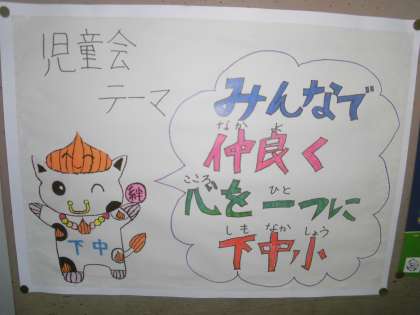 児童会
テーマ
みんなで
なか よ
仲良く
こころ ひと
心を一つに
しも なか しょう
下中小
絆
下中